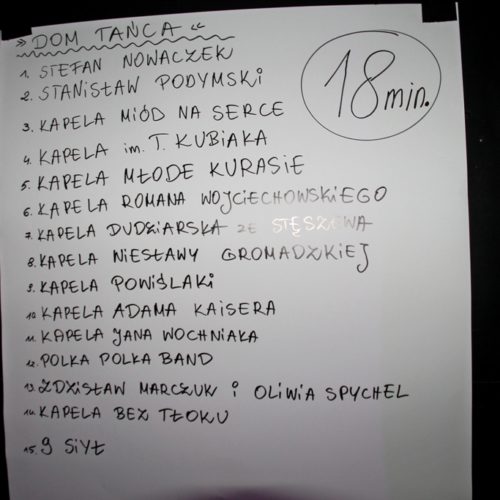 » DOM TAŃCA «
1. STEFAN NOWACZEK
2. STANISŁAW PODYMSKI
3. KAPELA MIÓD NA SERCE
4. KAPELA im. T. KUBIAKA
5. KAPELA MŁODE KURASIE
6. KAPELA ROMANA WOJCIECHOWSKIEGO
7. KAPELA DUDZIARSKA ZE STĘSZEWA
8. KAPELA NIESŁAWY GROMADZKIEJ
9. KAPELA POWIŚLAKI
10. KAPELA ADAMA KAISERA
11. KAPELA JANA WOCHNIAKA
12. POLKA POLKA BAND
13. ZDZISŁAW MARCZUK i OLIWIA SPYCHEL
14. KAPELA BEZ TŁOKU
15. 9 SIYŁ
18 min.